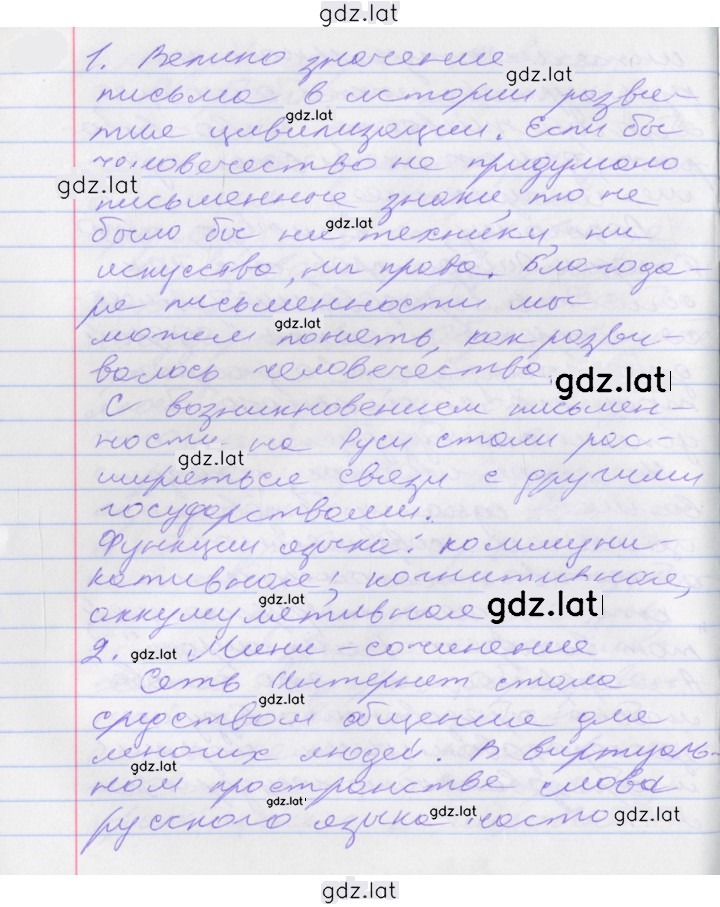 gdz.lat
1. Велико значение
gdz.lat
письма в истории разви-
gdz.lat
тия цивилизации. Если бы
человечество не придумало
gdz.lat
письменные знаки, то не
gdz.lat
было бы ни техники, ни
искусства, ни права. Благода-
ря письменности мы
gdz.lat
можем понять, как разви-
валось человечество.
gdz.lat
С возникновением письмен-
ности на Руси стали рас-
gdz.lat
ширяться связи с другими
государствами.
Функции языка: коммуни-
кативная, когнитивная,
gdz.lat
аккумулятивная
gdz.lat
2. Мини-сочинение
gdz.lat
Сеть Интернет стала
gdz.lat
средством общения для
многих людей. В виртуаль-
gdz.lat
ном пространстве слова
gdz.lat
русского языка часто
gdz.lat
gdz.lat
gdz.lat